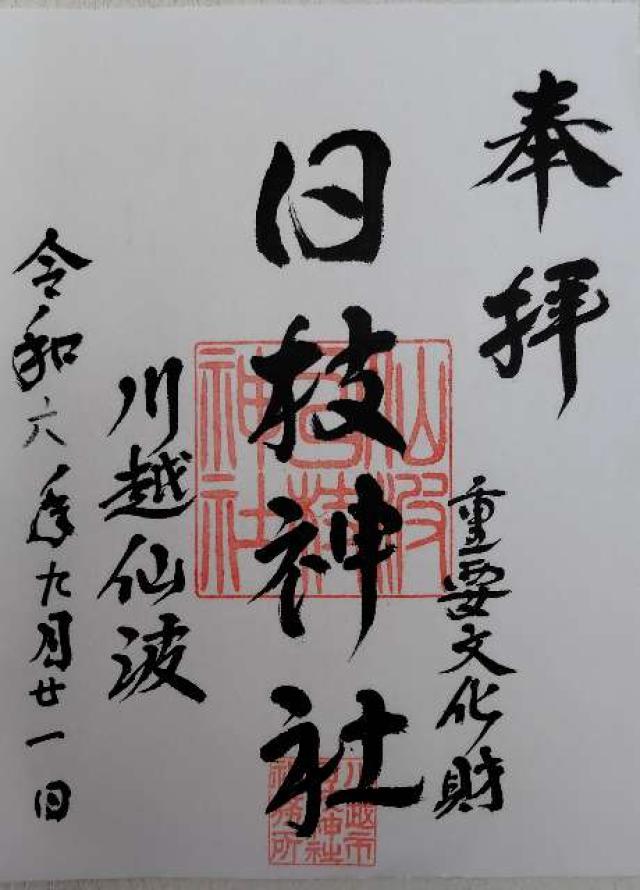 奉拝
重要文化財
日枝神社
川越仙波
令和六年九月廿一日
仙波
日枝
神社
川越市
日枝神社
社務所